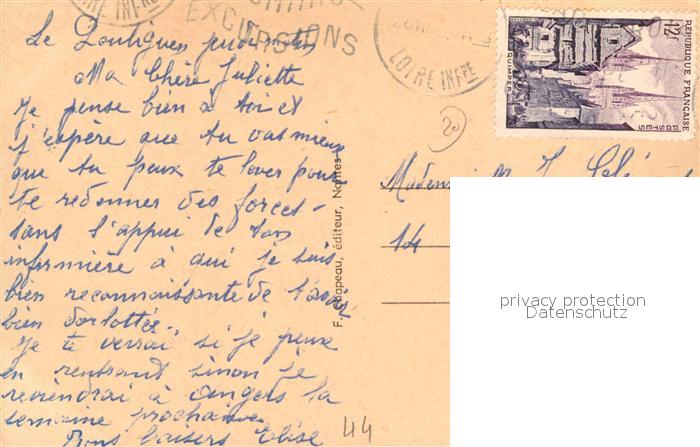 LOIRE INFRE
EXCURSIONS
LOIRE INFRE
12F
RÉPUBLIQUE FRANÇAISE
POSTES
QUIMPER
20
Le
Ma Chère Juliette
Je pense bien à toi et
j'espère que tu vas mieux
que tu peux te lever pour
te redonner des forces -
sans l'appui de ton
infirmière à qui je suis
bien reconnaissante de t'avoir
bien dorlottée..
Je te verrai si je peux
en rentrant sinon je
reviendrai à Angers la
semaine prochaine
Bons baisers Elise
F. Chapeau, éditeur, Nantes
14
privacy protection
Datenschutz
44